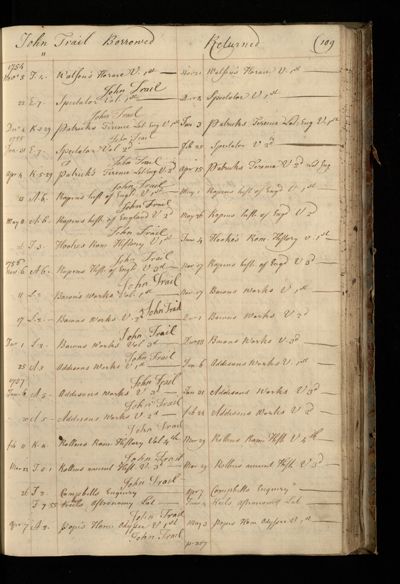 John Trail Borrowed Returned (109
1754
Nov 2 T.2. Watson's Horace V. 1st Nov 21 Watsons Horace V. 1st
John Trail
22 E.7. Spectator Vol 1st Dec 2 Spectator V 1st
John Trail
Dec 4 K.5.29 Patricks Terence Lat Eng V 1st Jan 3 Patricks Terence Lat Eng V. 1st
1755 John Trail
Jan 21 E.7. Spectator Vol 2d Feb 22 Spectator V 2d
John Trail
Apr 4 K.5.29 Patrick's Terence Lat Eng V. 2d Apr 15 Patricks Terence V 2d Lat Eng
John Trail
A.6. Rapins hist. of Engl. V 1st May 1 Rapins hist of Engd V. 1st
John Trail
May 2 A.6. Rapins hist. of England V 2d May 26 Rapins hist. of Engd V 2d
John Trail
T.3. Hookes Rom. History V 1st June 4 Hooke's Rom. History V. 1st
1756 John Trail
Nov 6 A.6. Rapins Hist. of Engd V 3d Nov 17 Rapins hist. of Engd V 3d
John Trail
11 L.2. Bacon's Works Vol. 1st Nov 17 Bacons Works V 1st
John Trail
17 L.2. Bacons Works V 2d Dec 1 Bacons Works V. 2d
John Trail
Dec 1 L.2. Bacons Works Vol 3d Bacons Works V. 3d
John Trail
25 A.5 Addisons Works V 1st Jan 6 Addisons Works V. 1st
1757 John Trail
Jan 6 A.5. Addisons Works V 3d Jan 21 Addisons Works V. 3d
John Trail
A.5. Addisons Works V 2d Feb 22 Addisons Works V 2d
John Trail
Feb K.4 Rollins Rom. History Vol 4th Mar 29 Rollins Rom Hist. V. 4th
John Trail
Mar 22 T.5.1 Rollins ancient Hist. V. 3d Mar 29 Rollins ancient Hist. V 3d
John Trail
T.2 Campbells Enquiry Apr 7 Campbells Enquiry
T.7.55 Keils astronomy Lat Keils astronomy Lat
John Trail
Apr 7 A.2. Popes Hom. Odyssee V 1st May 3 Popes Hom Odyssee V. 1st
John Trail